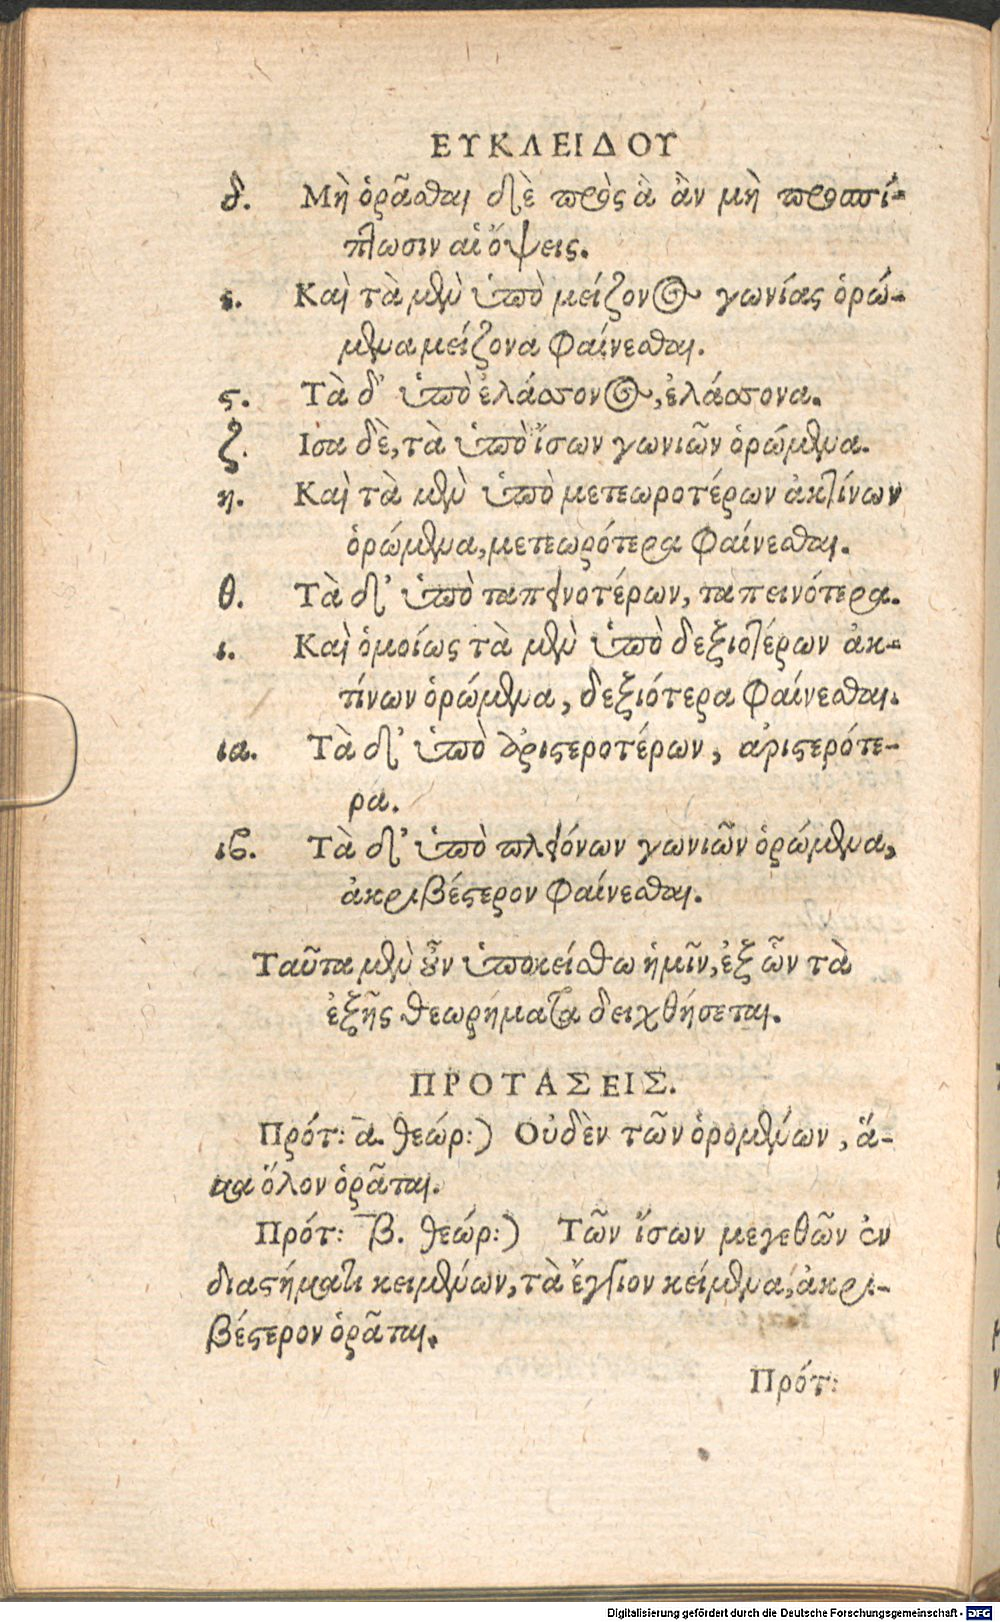 ΕΥΚΛΕΙΔΟΥ
δ. Μὴ ὁρᾶσθαι δὲ πρὸς ἃ ἂν μὴ προσπί-
πτωσιν αἱ ὄψεις.
ε. Καὶ τὰ μὲν ὑπὸ μείζονος γωνίας ὁρώ-
μενα μείζονα φαίνεσθαι.
ς. Τὰ δ' ὑπὸ ἐλάσσονος, ἐλάσσονα.
ζ. Ισα δὲ, τὰ ὑπὸ ἴσων γωνιῶν ὁρώμενα.
η. Καὶ τὰ μὲν ὑπὸ μετεωροτέρων ἀκτίνων
ὁρώμενα, μετεωρότερα φαίνεσθαι.
θ. Τὰ δ' ὑπὸ ταπεινοτέρων, ταπεινότερα.
ι. Καὶ ὁμοίως τὰ μὲν ὑπὸ δεξιοτέρων ἀκ-
τίνων ὁρώμενα, δεξιότερα φαίνεσθαι.
ια. Τὰ δ' ὑπὸ ἀριστεροτέρων, ἀριστερότε-
ρα.
ιβ. Τὰ δ' ὑπὸ πλειόνων γωνιῶν ὁρώμενα,
ἀκριβέστερον φαίνεσθαι.
Ταῦτα μὲν οὖν ὑποκείσθω ἡμῖν, ἐξ ὧν τὰ
ἐξῆς θεωρήματα δειχθήσεται.
ΠΡΟΤΑΣΕΙΣ.
Πρότ: α. θεώρ:) Οὐδὲν τῶν ὁρομένων, ἅ-
μα ὅλον ὁρᾶται.
Πρότ: β. θεώρ:) Τῶν ἴσων μεγεθῶν ἐν
διαστήματι κειμένων, τὰ ἔγγιον κείμενα, ἀκρι-
βέστερον ὁρᾶται.
Πρότ:
Digitalisierung gefördert durch die Deutsche Forschungsgemeinschaft - DFG